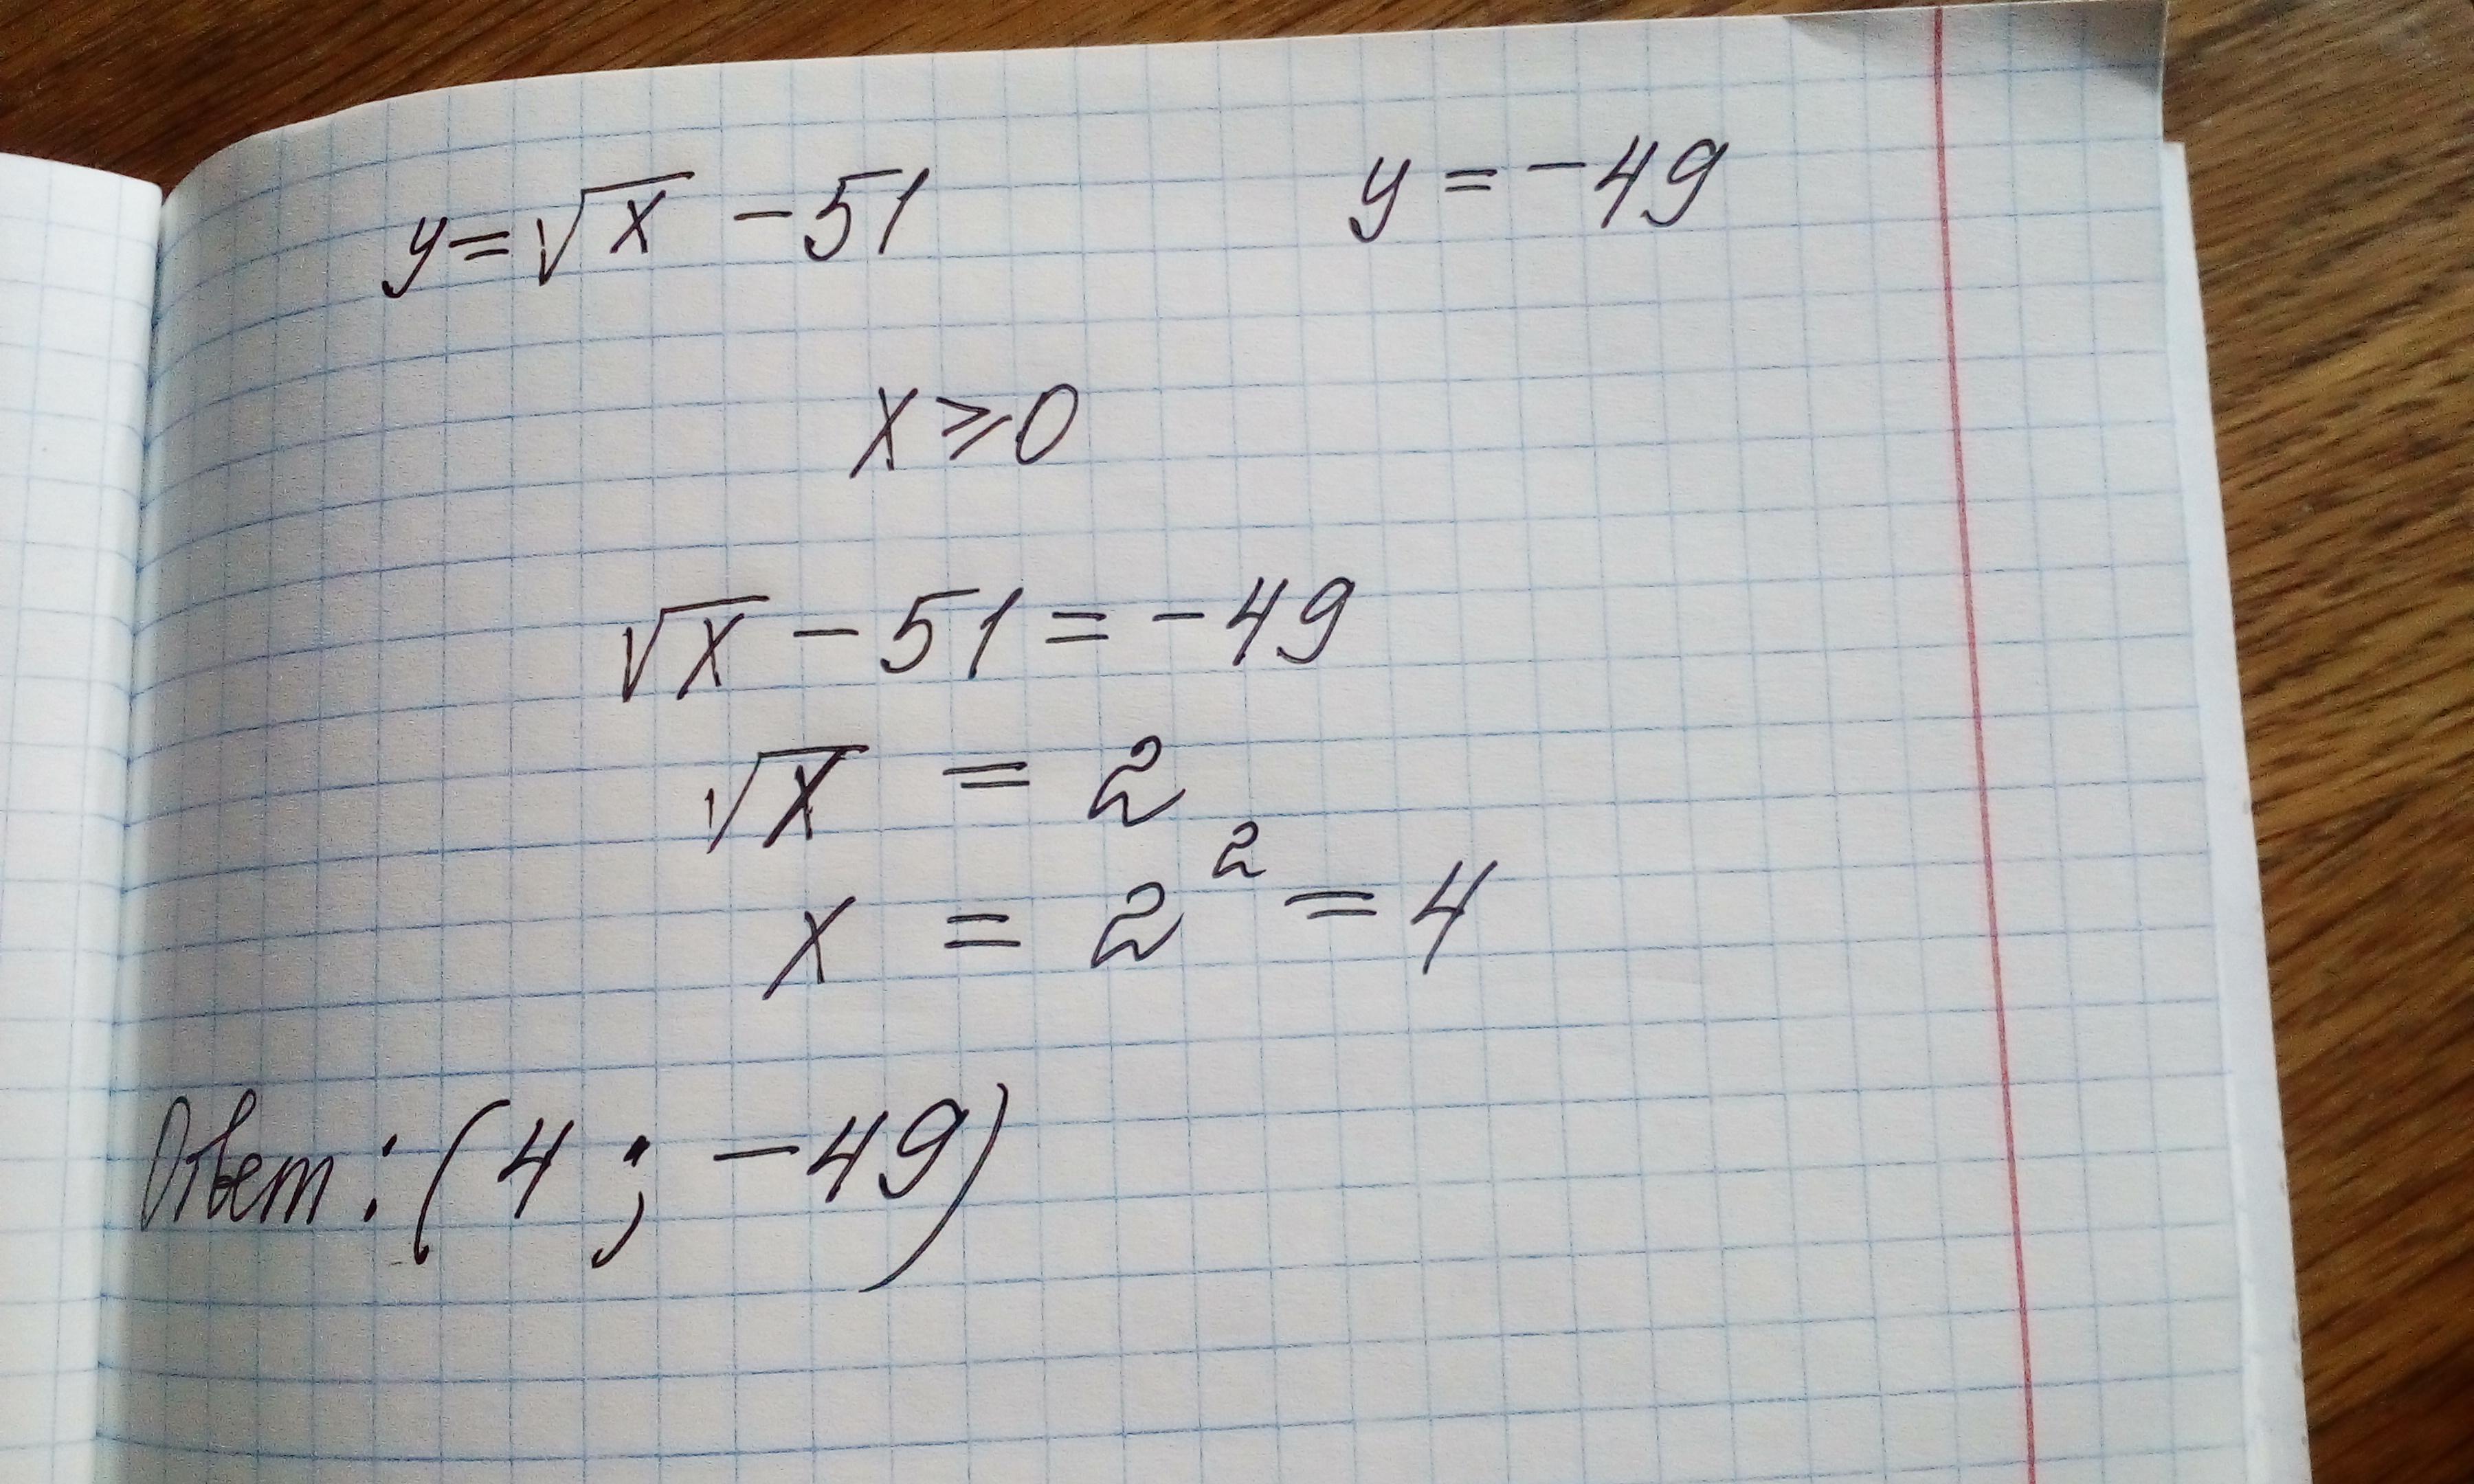 y = √x - 51    y = -49
x ⩾ 0
√x - 51 = -49
√x = 2
x = 2² = 4
Ответ: (4; -49)